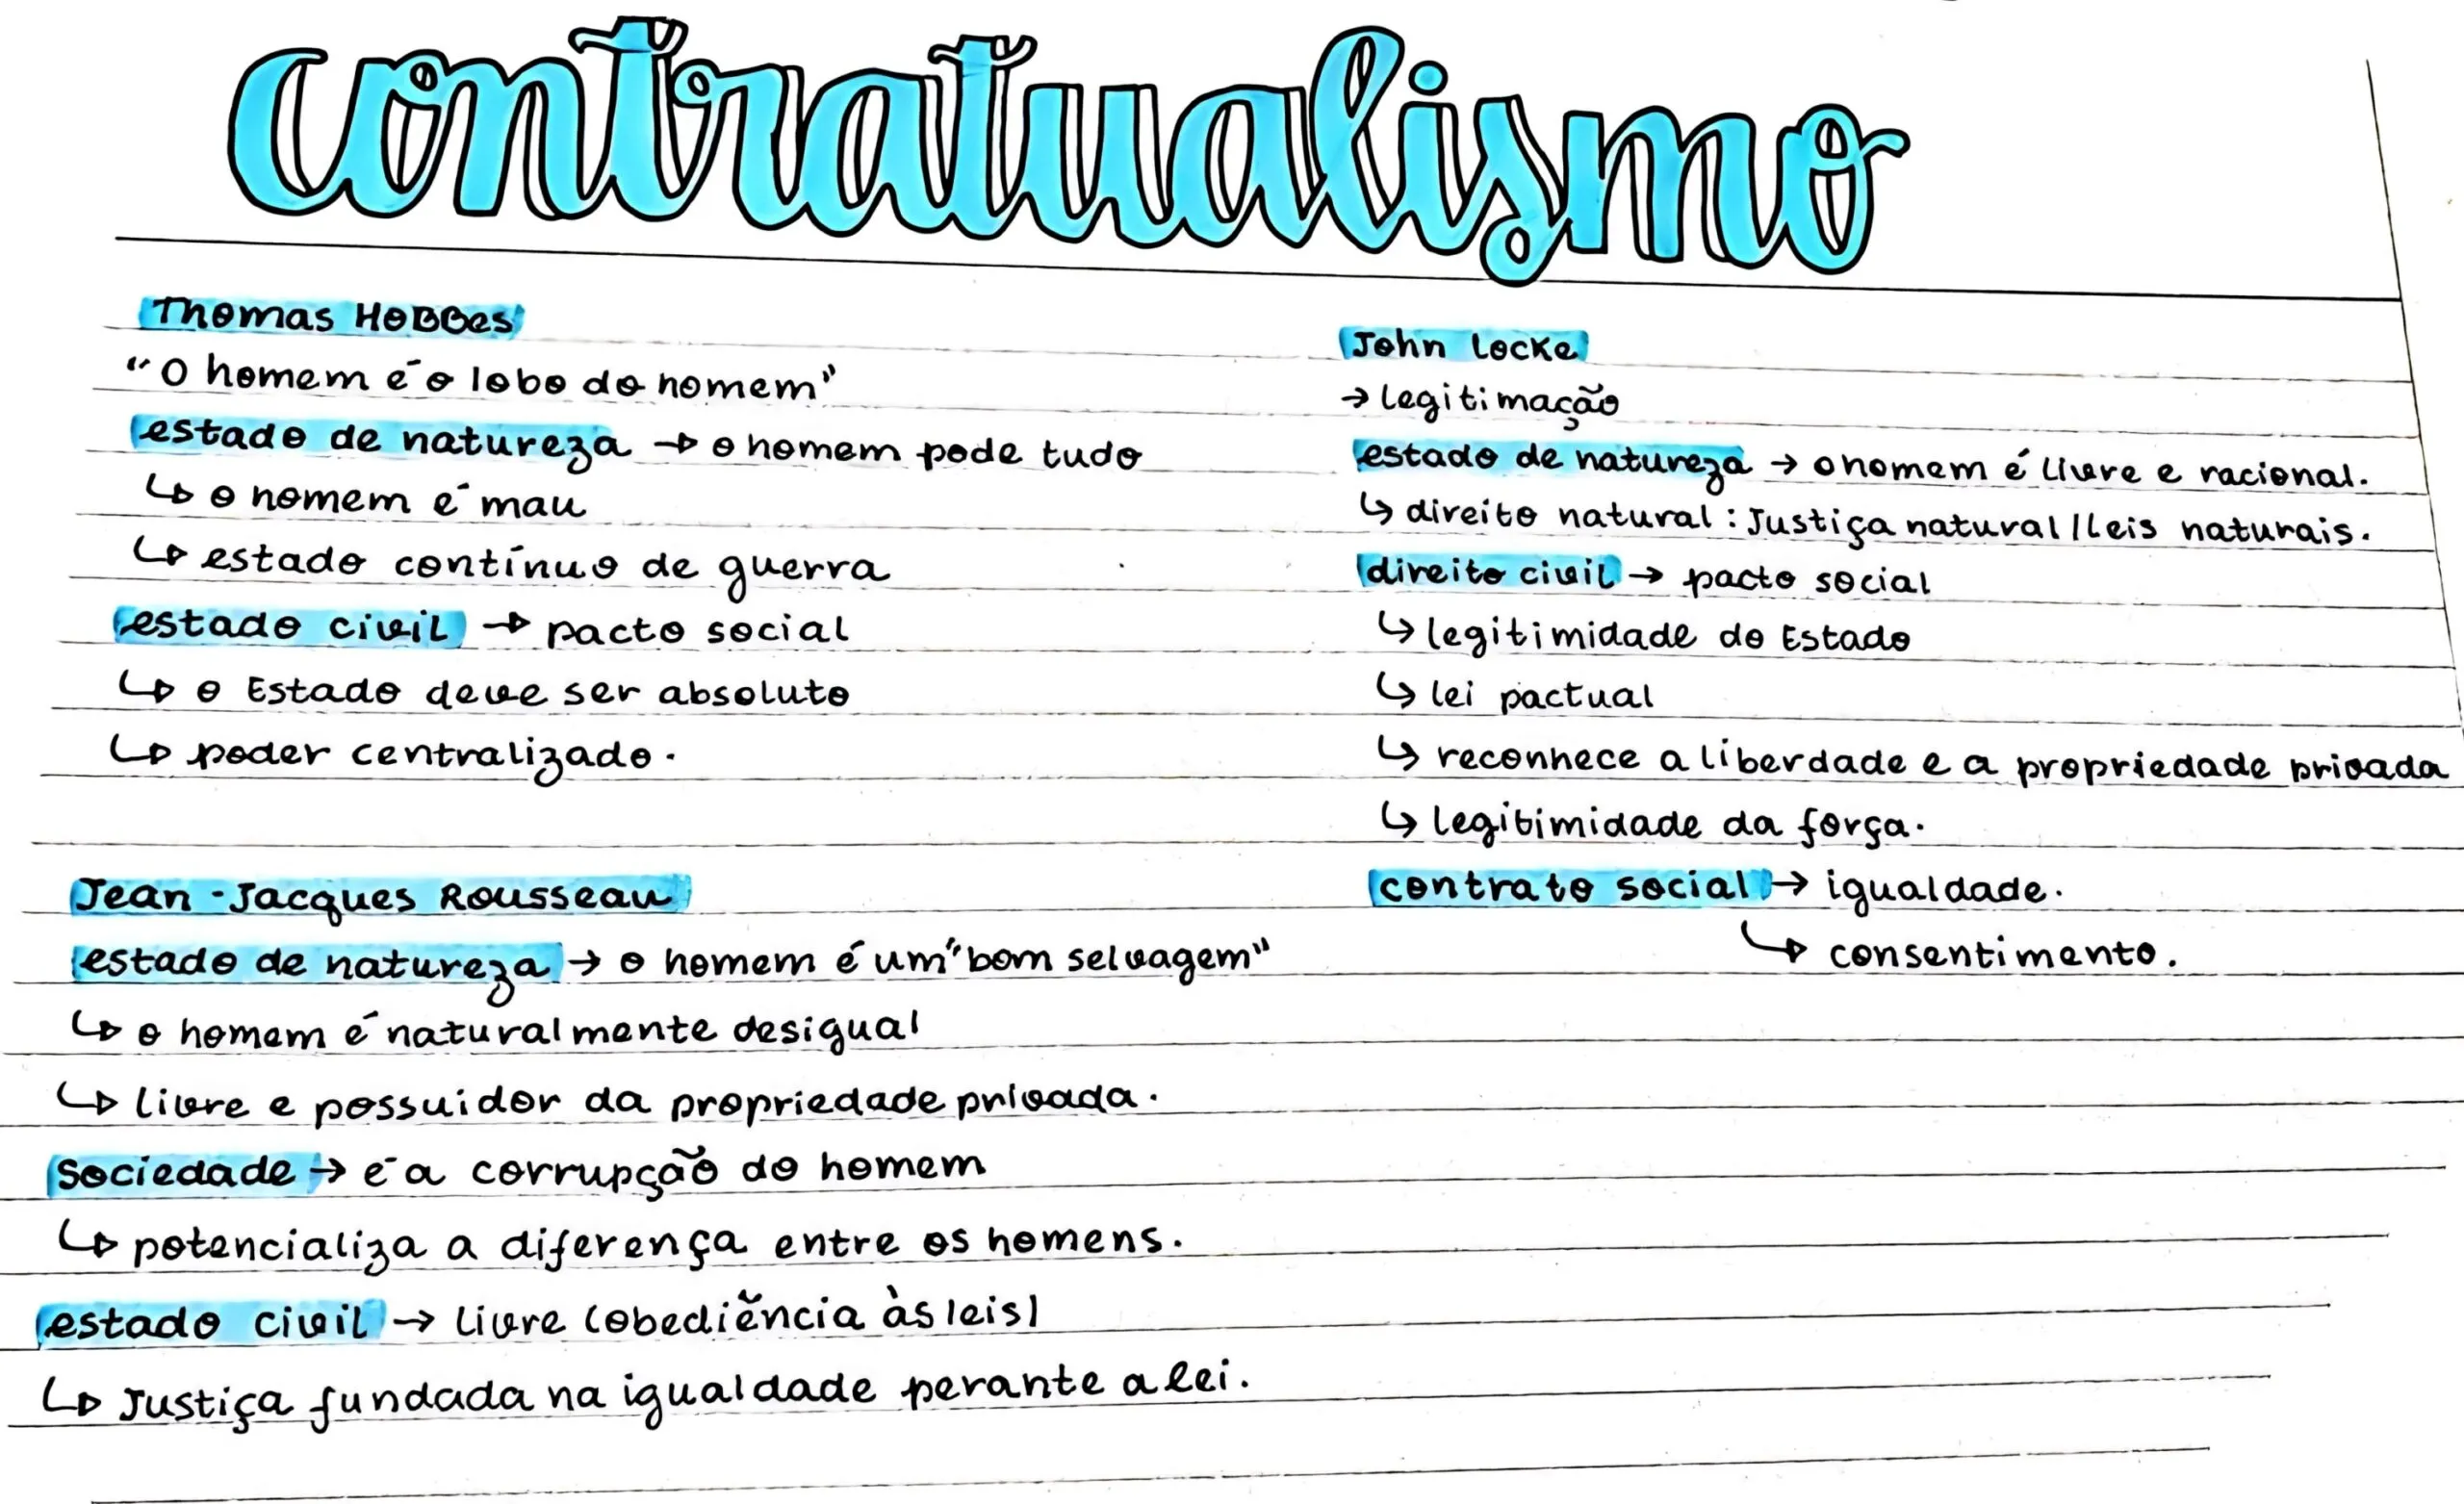 contratualismo
Thomas Hobbes
"O homem é o lobo do homem"
estado de natureza → o homem pode tudo
↳ o homem é mau
↳ estado contínuo de guerra
estado civil → pacto social
↳ o Estado deve ser absoluto
↳ poder centralizado.
Jean-Jacques Rousseau
estado de natureza → o homem é um "bom selvagem"
↳ o homem é naturalmente desigual
↳ livre e possuidor da propriedade privada.
Sociedade → é a corrupção do homem
↳ potencializa a diferença entre os homens.
estado civil → livre (obediência às leis)
↳ Justiça fundada na igualdade perante a lei.
John Locke
→ legitimação
estado de natureza → o homem é livre e racional.
↳ direito natural: Justiça natural/leis naturais.
direito civil → pacto social
↳ legitimidade do Estado
↳ lei pactual
↳ reconhece a liberdade e a propriedade privada
↳ legitimidade da força.
contrato social → igualdade.
↳ consentimento.